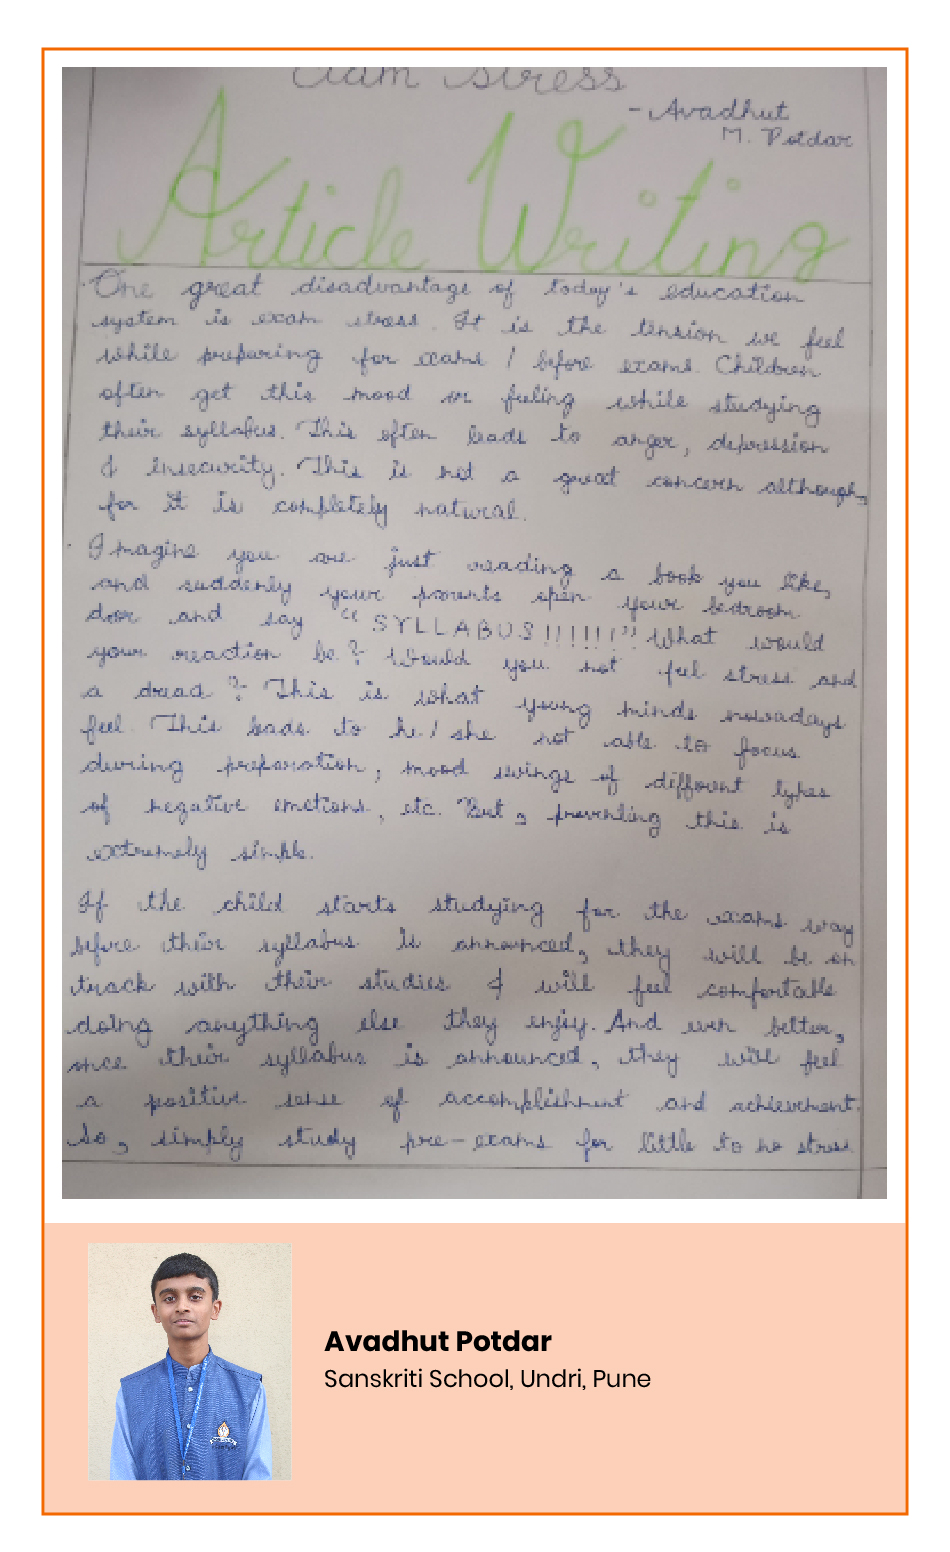 Exam Stress
- Avadhut
M. Potdar
Article Writing
One great disadvantage of today's education
system is exam stress. It is the tension we feel
while preparing for exams / before exams. Children
often get this mood or feeling while studying
their syllabus. This often leads to anger, depression
& insecurity. This is not a great concern although,
for it is completely natural.
Imagine you are just reading a book you like,
and suddenly your parents open your bedroom
door and say "SYLLABUS!!!!!!" What would
your reaction be? Would you not feel stress and
a dread? This is what young minds nowadays
feel. This leads to he/she not able to focus
during preparation, mood swings of different types
of negative emotions, etc. But, preventing this is
extremely simple.
If the child starts studying for the exams way
before their syllabus is announced, they will be on
track with their studies & will feel comfortable
doing anything else they enjoy. And even better,
once their syllabus is announced, they will feel
a positive sense of accomplishment and achievement.
So, simply study pre-exams for little to no stress
Avadhut Potdar
Sanskriti School, Undri, Pune